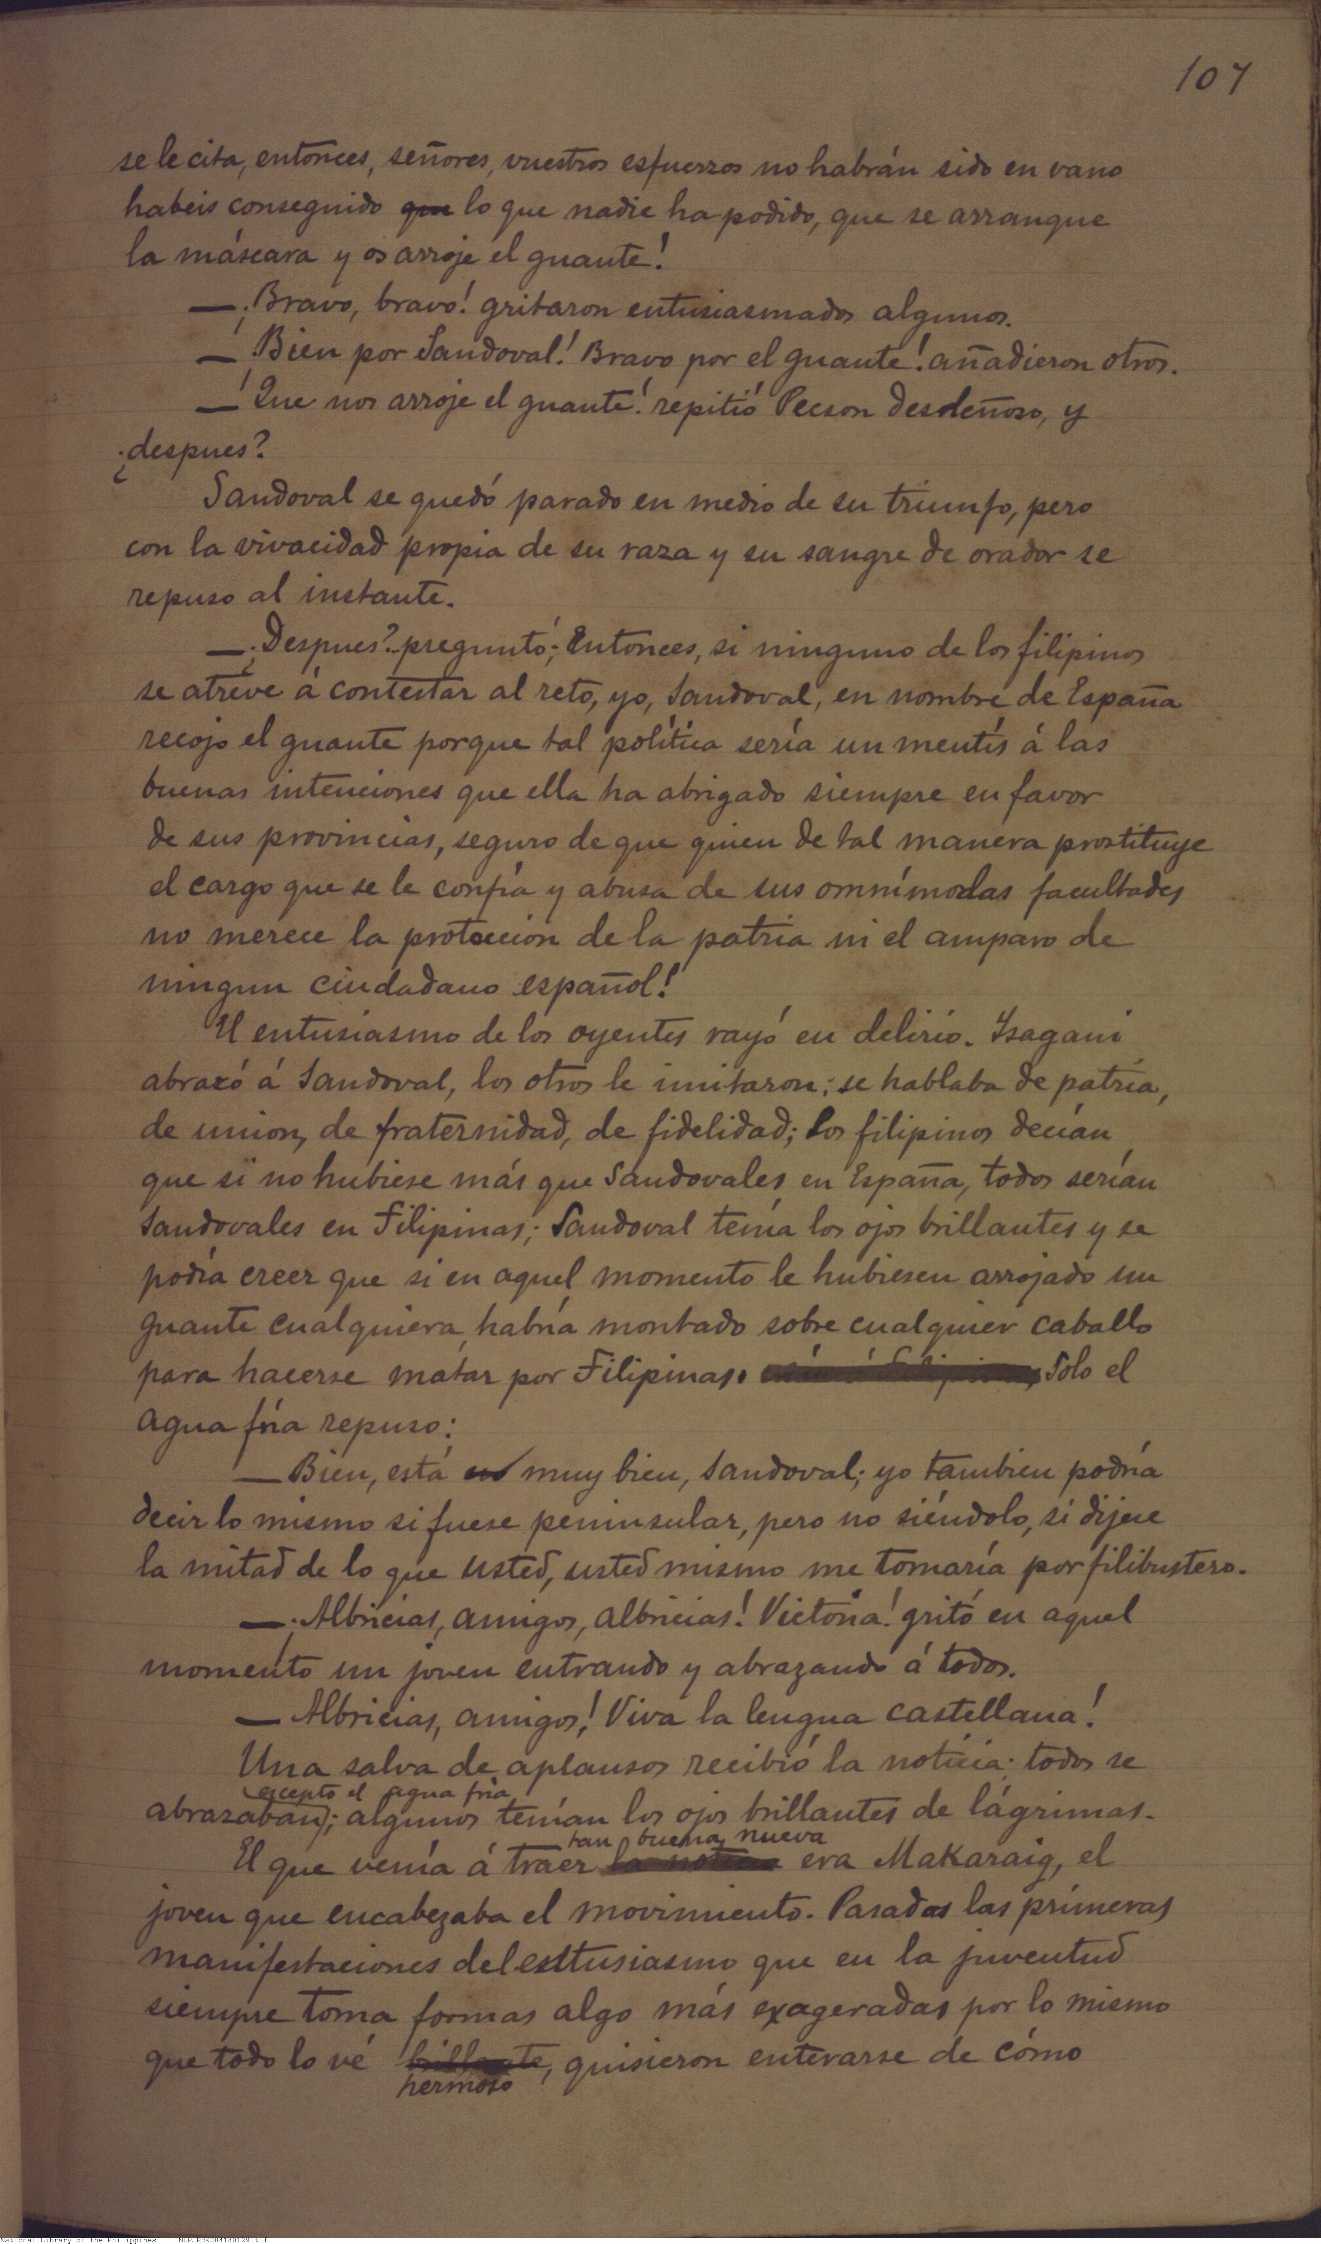 107
se le cita, entonces, señores, vuestros esfuerzos no habrán sido en vano
habeis conseguido que lo que nadie ha podido, que se arranque
la máscara y os arroje el guante!
—¡Bravo, bravo! gritaron entusiasmados algunos.
—¡Bien por Sandoval! Bravo por el guante! añadieron otros.
—¡Que nos arroje el guante! repitió Pecson desdeñoso, y
¿despues?
Sandoval se quedó parado en medio de su triunfo, pero
con la vivacidad propia de su raza y su sangre de orador se
repuso al instante.
—¿Despues? preguntó; Entonces, si ninguno de los filipinos
se atreve á contestar al reto, yo, Sandoval, en nombre de España
recojo el guante porque tal política sería un mentís á las
buenas intenciones que ella ha abrigado siempre en favor
de sus provincias, seguro de que quien de tal manera prostituye
el cargo que se le confía y abusa de sus omnímodas facultades
no merece la proteccion de la patria ni el amparo de
ningun ciudadano español!
El entusiasmo de los oyentes rayó en delirio. Isagani
abrazó á Sandoval, los otros le imitaron; se hablaba de patria,
de union, de fraternidad, de fidelidad; los filipinos decían
que si no hubiese más que Sandovales en España, todos serían
Sandovales en Filipinas; Sandoval tenía los ojos brillantes y se
podía creer que si en aquel momento le hubiesen arrojado un
guante cualquiera, habría montado sobre cualquier caballo
para hacerse matar por Filipinas. Solo el
agua fría repuso:
—Bien, está muy bien, Sandoval; yo tambien podría
decir lo mismo si fuese peninsular, pero no siéndolo, si dijese
la mitad de lo que usted, usted mismo me tomaría por filibustero.
—¡Albricias, amigos, albricias! Victoria! gritó en aquel
momento un joven entrando y abrazando á todos.
—Albricias, amigos! Viva la lengua castellana!
Una salva de aplausos recibió la noticia; todos se
excepto el agua fría
abrazaban; algunos tenían los ojos brillantes de lágrimas.
tan buena nueva
El que venía á traer la noticia era Makaraig, el
joven que encabezaba el movimiento. Pasadas las primeras
manifestaciones del entusiasmo que en la juventud
siempre toma formas algo más exageradas por lo mismo
que todo lo vé brillante, quisieron enterarse de cómo
hermoso
National Library of the Philippines